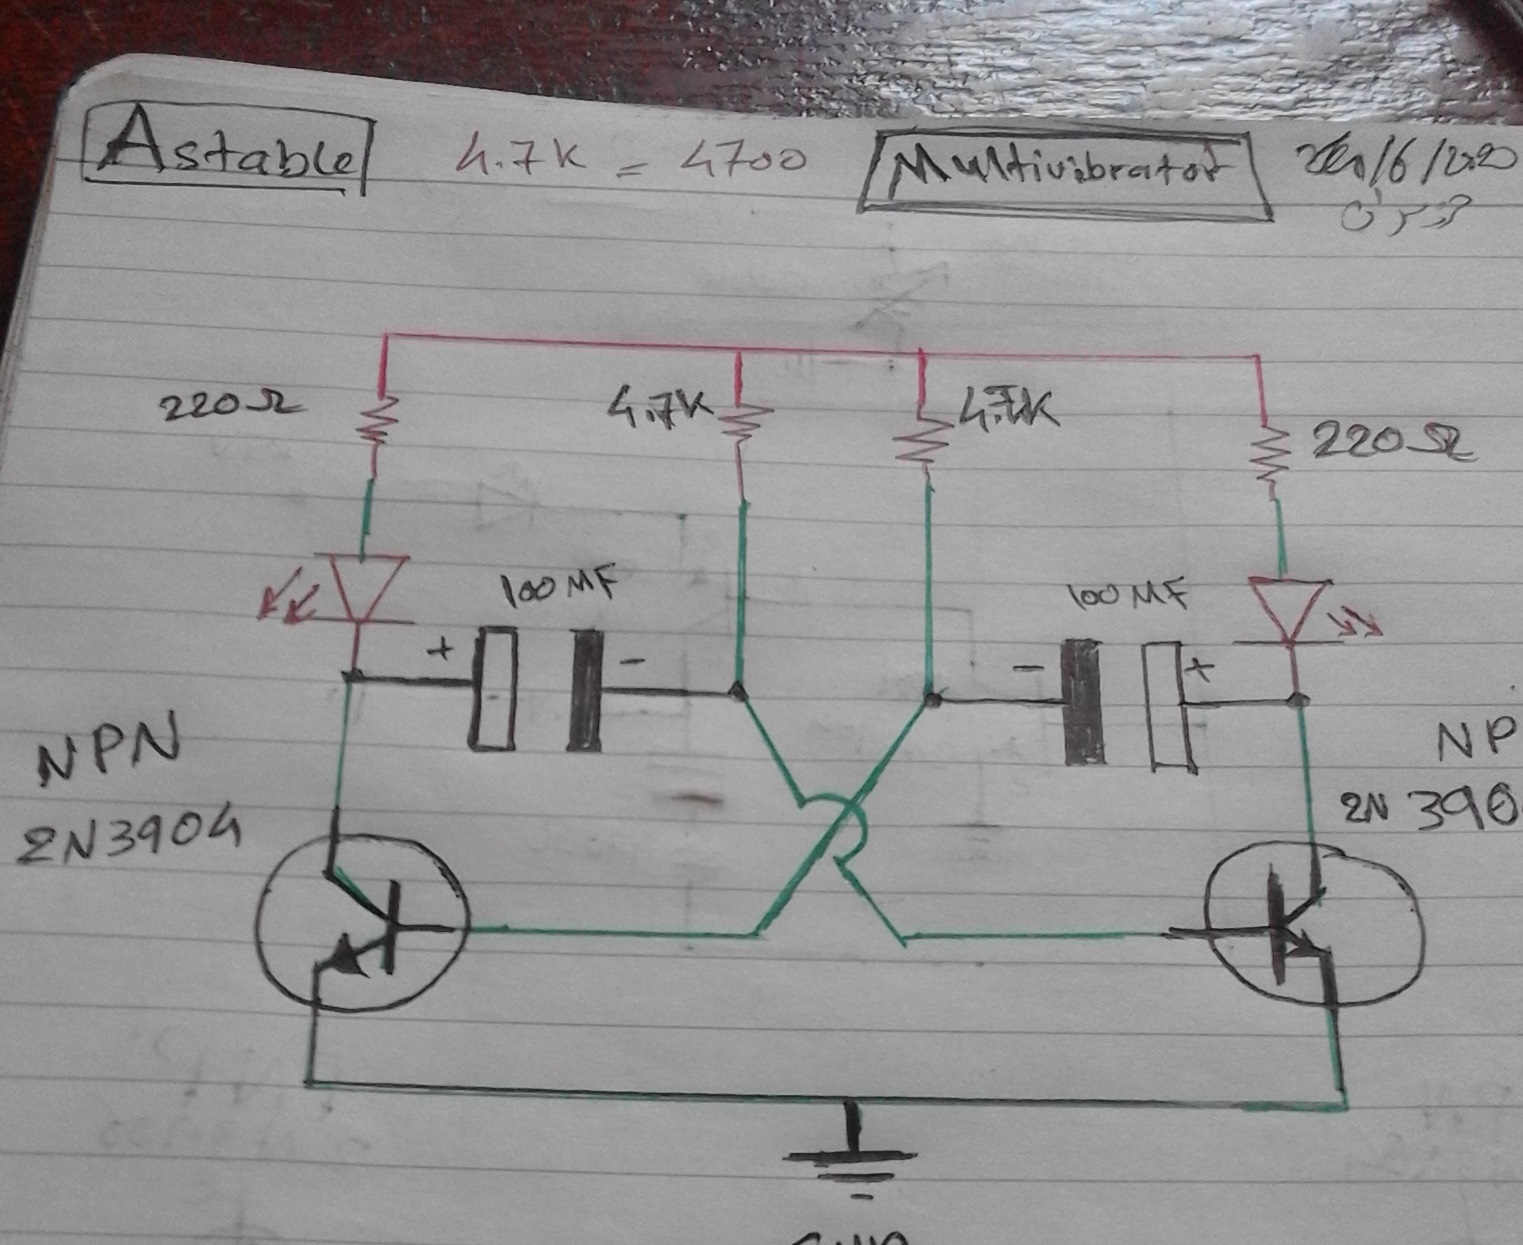 Astable 4.7K = 4700 Multivibrator /6/2020
220Ω 4.7K 4.7K 220Ω
100MF 100MF
+ - - +
NPN NP
2N3904 2N 390